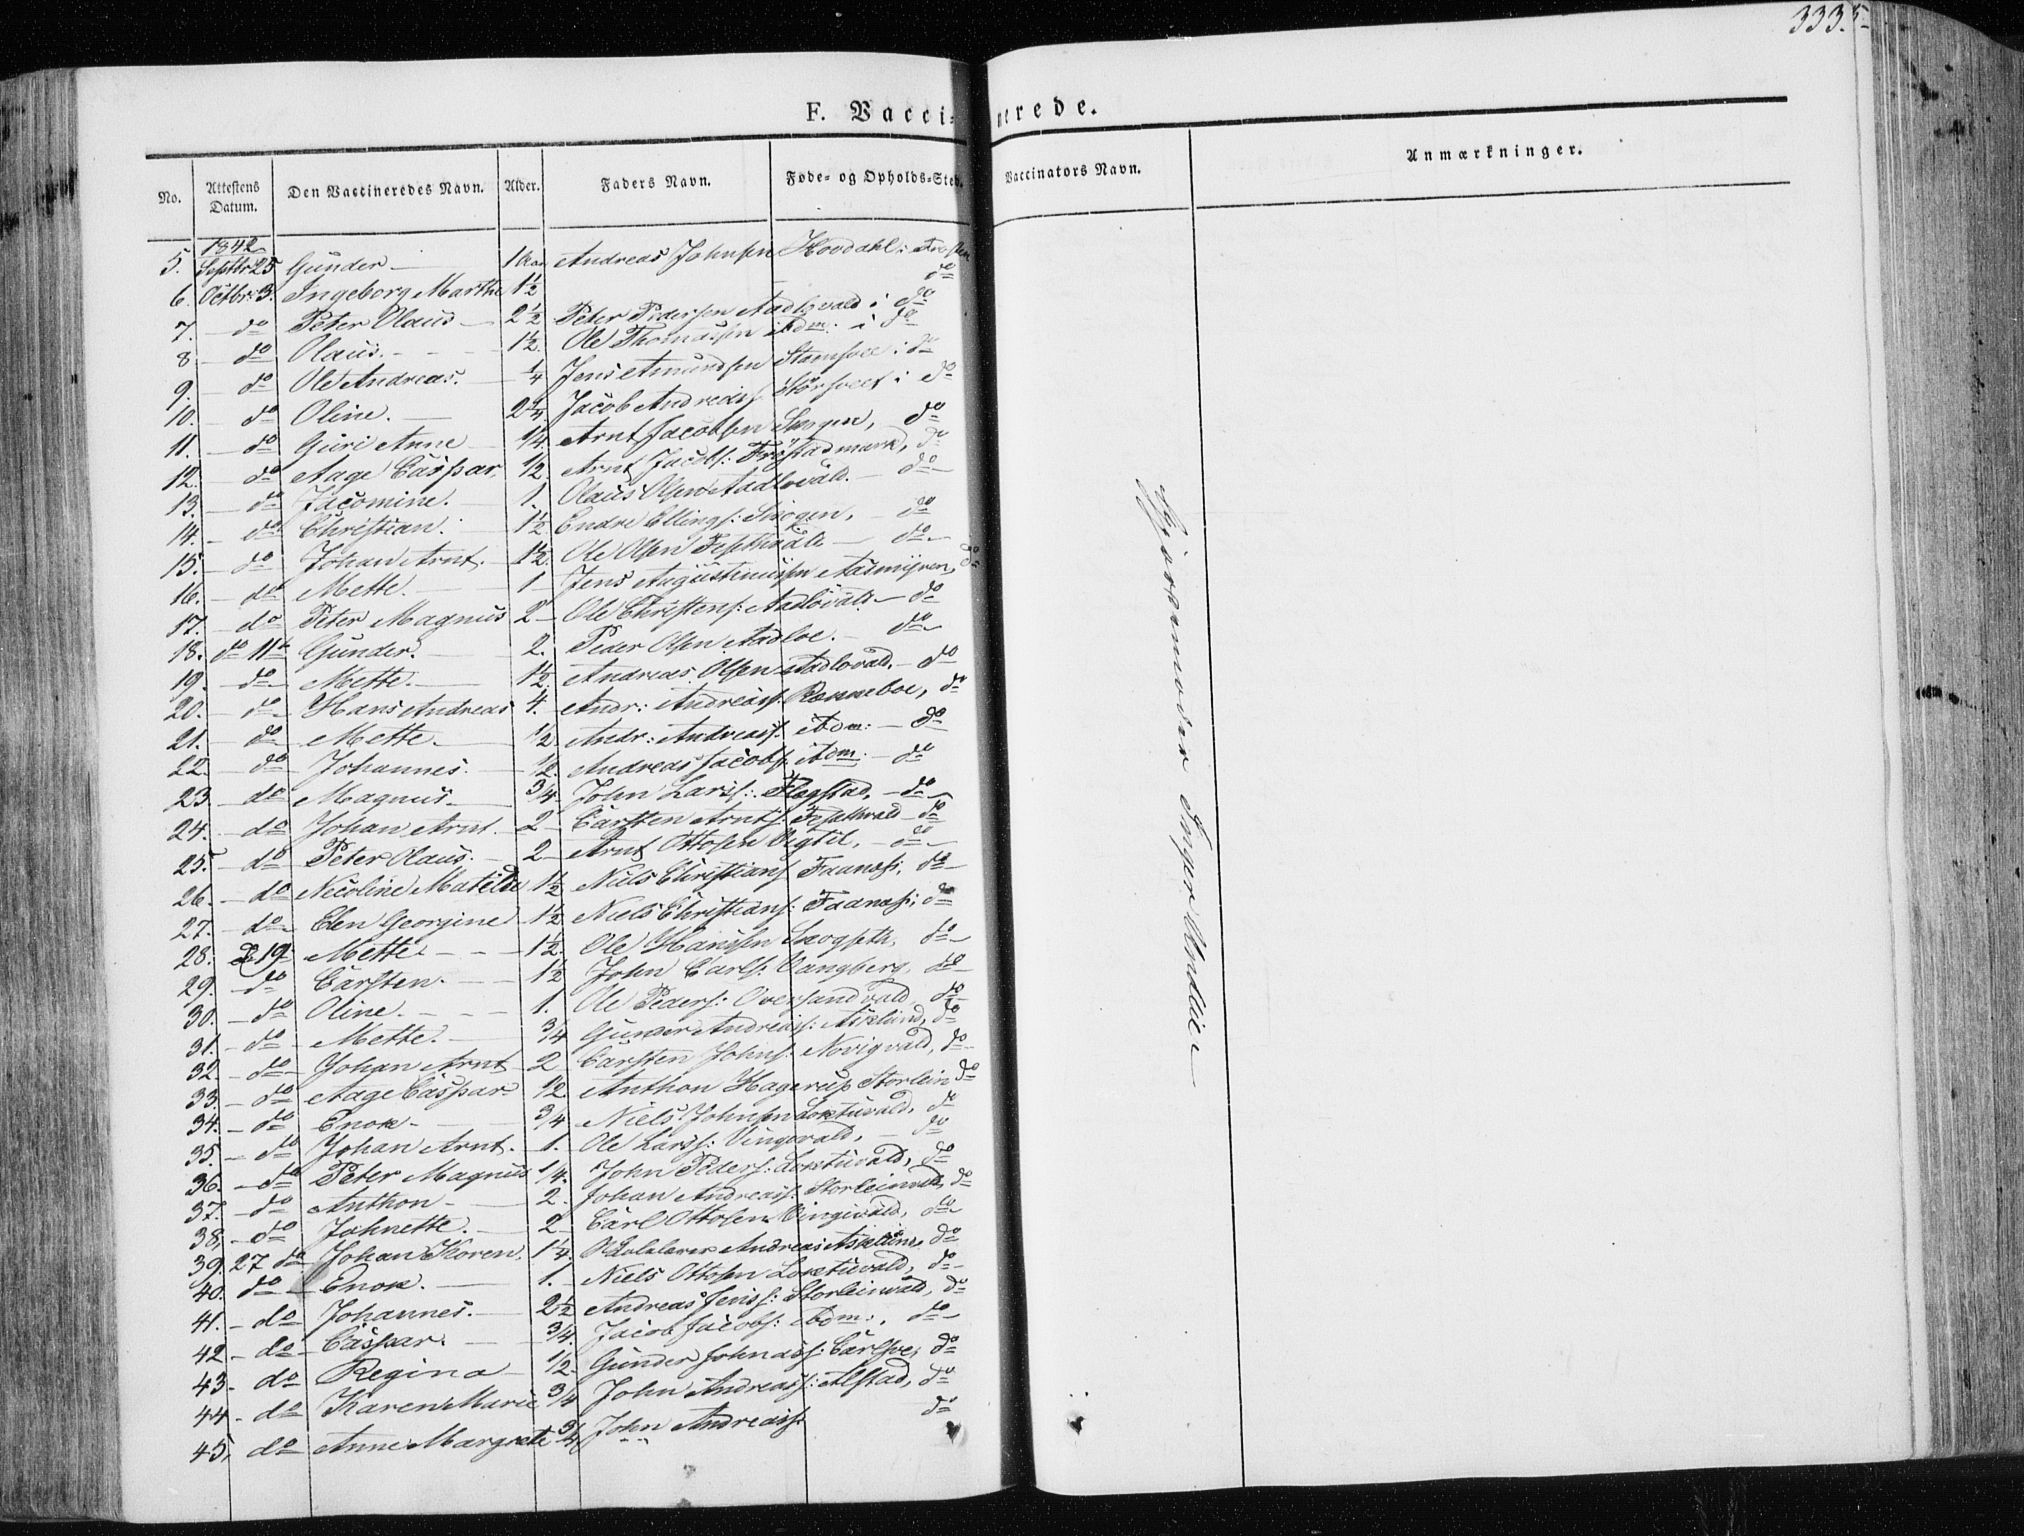 333.
F. Vaccinerede.
No. Attestens Datum. Den Vaccineredes Navn. Alder. Faders Navn. Føde- og Opholds-Sted. Vaccinators Navn. Anmærkninger.
1842
5. Septbr 25 Gunder 1 Aar Andreas Johnsen Hovdahl i
6. Octbr: 3. Ingeborg Marthe 1½ do
7. do Peter Olaus 2½ Peter Pedersen Aadlovald i do
8 do Olaus. 1½. Ole Thomassen ibdm: i do
9. do Ole Andreas. ¼ Jens Amundsen i do
10. do Oline. 2¼ Jacob Andreass: i do
11. do Guri Anne 1/4. Arnt Jacobsen Skogen, do
12. do Aage Caspar 1/2. Arnt Jacobs: Frostadmark, do
13. do Jacomine. 1. Olaus Olsen Aadlovald. do
14. do Christian. 1½ Endre Ellings: Skogen, do
15. do Johan Arnt. 1½. Ole Olsen do
16. do Mette. 1 Jens Augustinussen Aasmyren, do
17. do Peter Magnus 2 Ole Christens: Aadlovald do
18. do 11te Gunder. 2. Peder Olsen Aadloe. do
19. do Mette. 1½ Andreas Olsen Aadlovald. do
20. do Hans Andreas 4. Andr: Andreass: do
21. do Mette. 1/2 Andr: Andreass: ibdm: do
22. do Johannes. 1/2. Andreas Jacobs: ibdm: do
23 do Magnus 3/4 John Larss: Flegstad, do
24. do Johan Arnt. 2 Carsten Arnts: do
25. do Peter Olaus. 2 Arnt Ottosen Vigtil, do
26. do Nicoline Matilde 1½ Niels Christians: do
27. do Elen Georgine 1½ Niels Christians: do
28. 19 Mette 1½. Ole Hansen Skogseth, do
29. do Carsten. 1½ John Carls: Vangberg, do
30. do Oline. 1. Ole Peders: Oversandvald, do
31. do Mette. 3/4 Gunder Andreass: Aslund, do
32. do Johan Arnt 2 Carsten Johns: Novigvald, do
33. do Aage Caspar 1/2 Anthon Hagerup Storlein do
34. do Enok 3/4 Niels Johnsen Loktuvald, do
35. do Johan Arnt. 1. Ole Larss: Vingevald, do
36. do Peter Magnus 1/4. John Peders: Loktuvald, do
37. do Anthon 2. Johan Andreass: Storleinvald, do
38, do Johnette. 2 Carl Ottosen Vingevald, do
39. 27 do Johan Koren. 1¼. Andreas do
40. do Enok. 1. Niels Ottosen Loktuvald, do
41. do Johannes. 2½ Andreas Jenss: Storleinvald, do
42. do Caspar. 3/4. Jacob Jacobs: ibdm:, do
43. do Regina 1/2. Gunder Johnass: do
44. do Karen Marie 3/4 John Andreass: Alstad, do
45. do Anne Margrete 3/4 John Andreass: do
Gjordemoder Inger Undlien